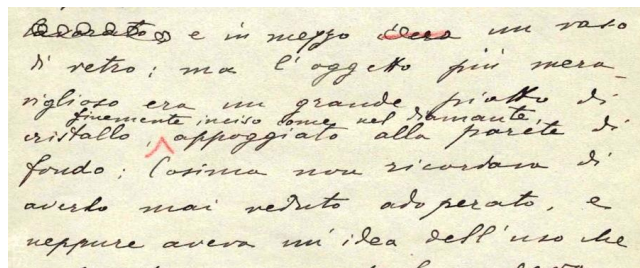 e in mezzo un vaso
di vetro; ma l'oggetto più mera-
viglioso era un grande piatto di
finemente inciso come nel diamante,
cristallo, appoggiato alla parete di
fondo; Cosima non ricordava di
averlo mai veduto adoperato, e
neppure aveva un'idea dell'uso che